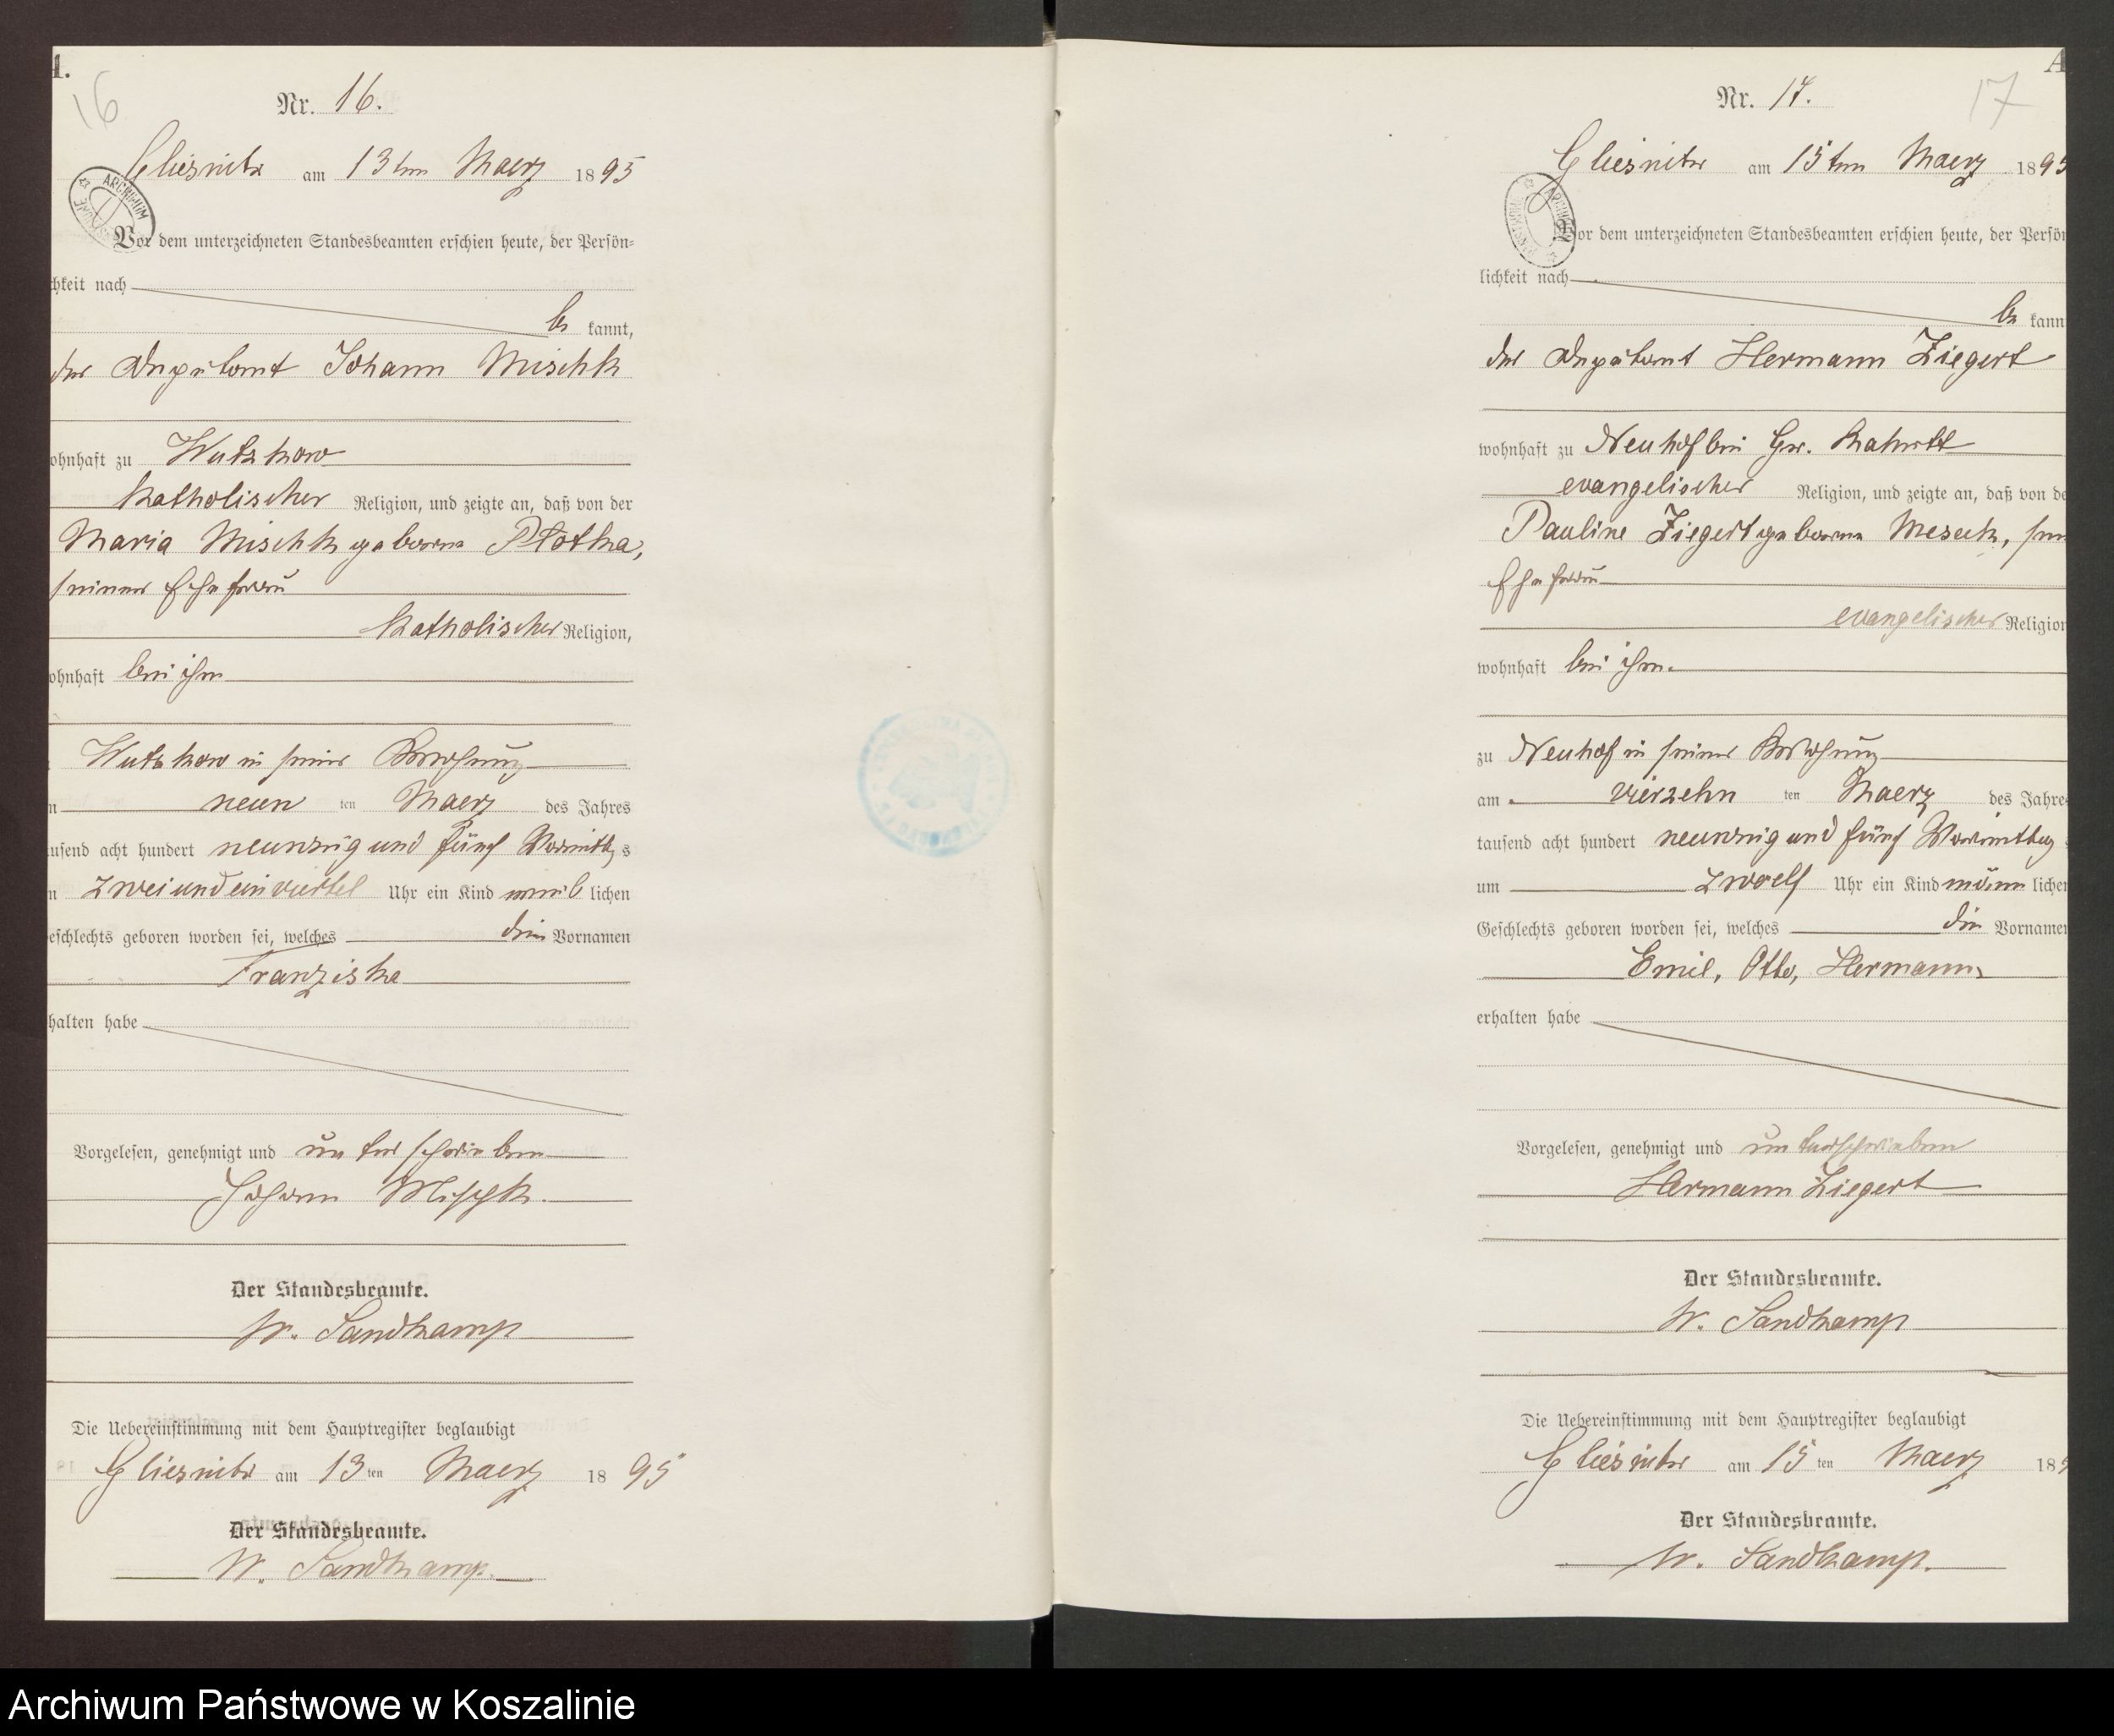 A.
16
Nr. 16.
Gliesnitz am 13ten Maerz 1895
ARCHIWUM
Vor dem unterzeichneten Standesbeamten erschien heute, der Persön=
hkeit nach
be kannt,
der Deputant Johann Mischk
ohnhaft zu Wutzkow
katholischer Religion, und zeigte an, daß von der
Maria Mischk geborne Plotka,
seiner Ehefrau
katholischer Religion,
ohnhaft bei ihm
Wutzkow in seiner Behausung
n neun ten Maerz des Jahres
usend acht hundert neunzig und fünf Vormittags
n zwei und ein viertel Uhr ein Kind weib lichen
eschlechts geboren worden sei, welches den Vornamen
Franziska
halten habe
Vorgelesen, genehmigt und unterschrieben
Johann Mischk.
Der Standesbeamte.
W. Sandkamp
Die Uebereinstimmung mit dem Hauptregister beglaubigt
Gliesnitz am 13 ten Maerz 18 95
Der Standesbeamte.
W. Sandkamp.
A
17
Nr. 17.
Gliesnitz am 15ten Maerz 1895
Vor dem unterzeichneten Standesbeamten erschien heute, der Persön
lichkeit nach
be kann
der Deputant Hermann Ziegert
wohnhaft zu Neuhof bei Gr.
evangelischer Religion, und zeigte an, daß von de
Pauline Ziegert geborne Meseck, sein
Ehefrau
evangelischer Religion
wohnhaft bei ihm
zu Neuhof in seiner Behausung
am vierzehn ten Maerz des Jahres
tausend acht hundert neunzig und fünf Vormittag
um zwoelf Uhr ein Kind männ lichen
Geschlechts geboren worden sei, welches die Vornamen
Emil, Otto, Hermann,
erhalten habe
Vorgelesen, genehmigt und unterschrieben
Hermann Ziegert
Der Standesbeamte.
W. Sandkamp
Die Uebereinstimmung mit dem Hauptregister beglaubigt
Gliesnitz am 15 ten Maerz 189
Der Standesbeamte.
W. Sandkamp.
Archiwum Państwowe w Koszalinie